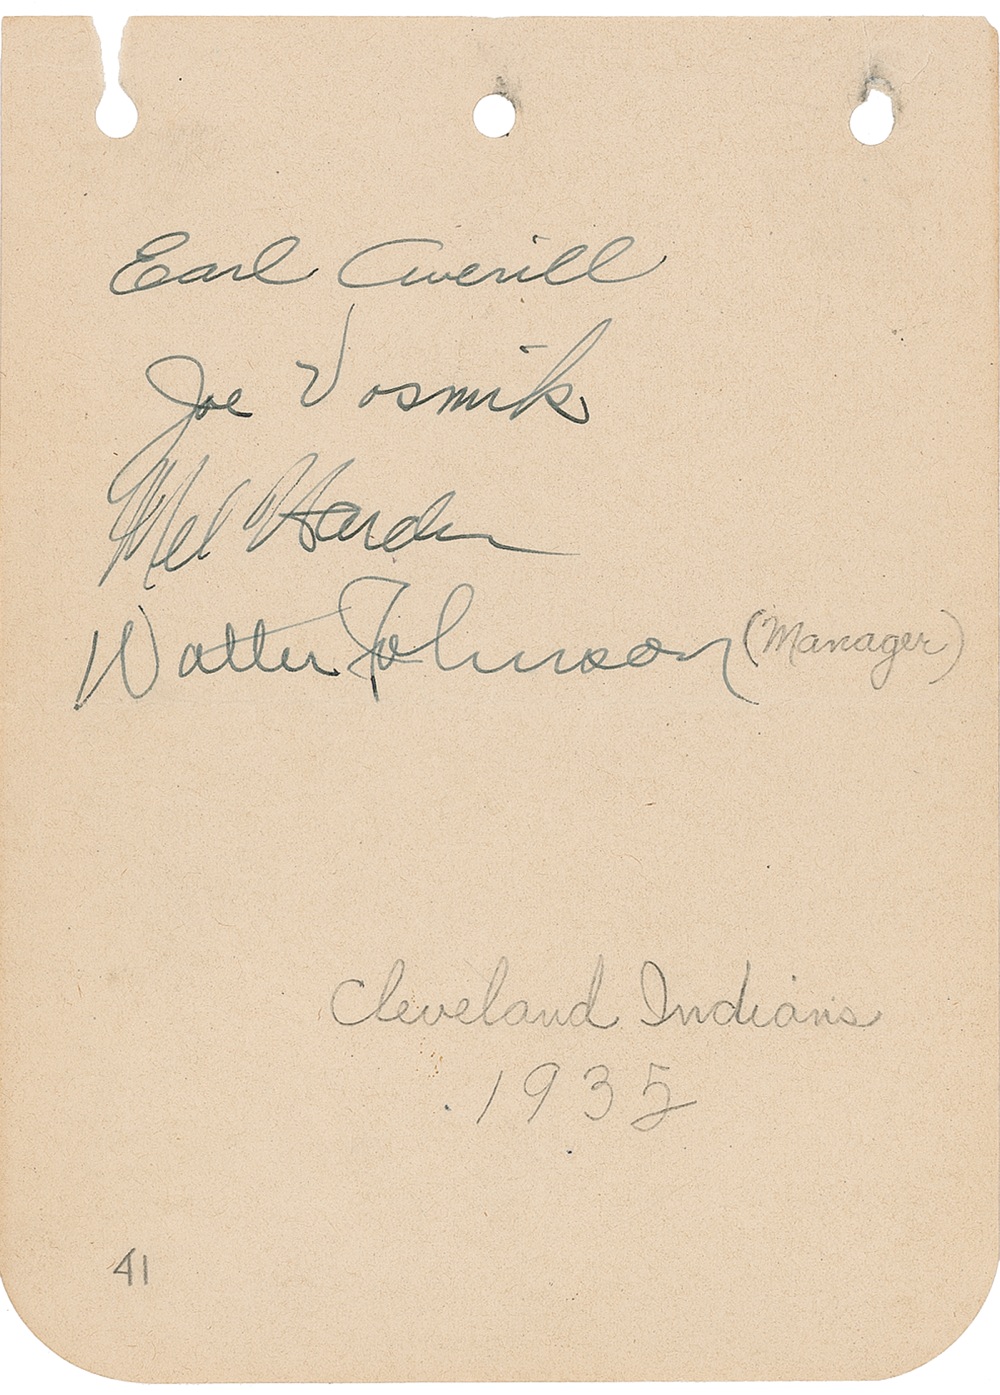 Earl Averill
Joe Vosmik
Mel Harder
Walter Johnson (Manager)
Cleveland Indians
1935
41